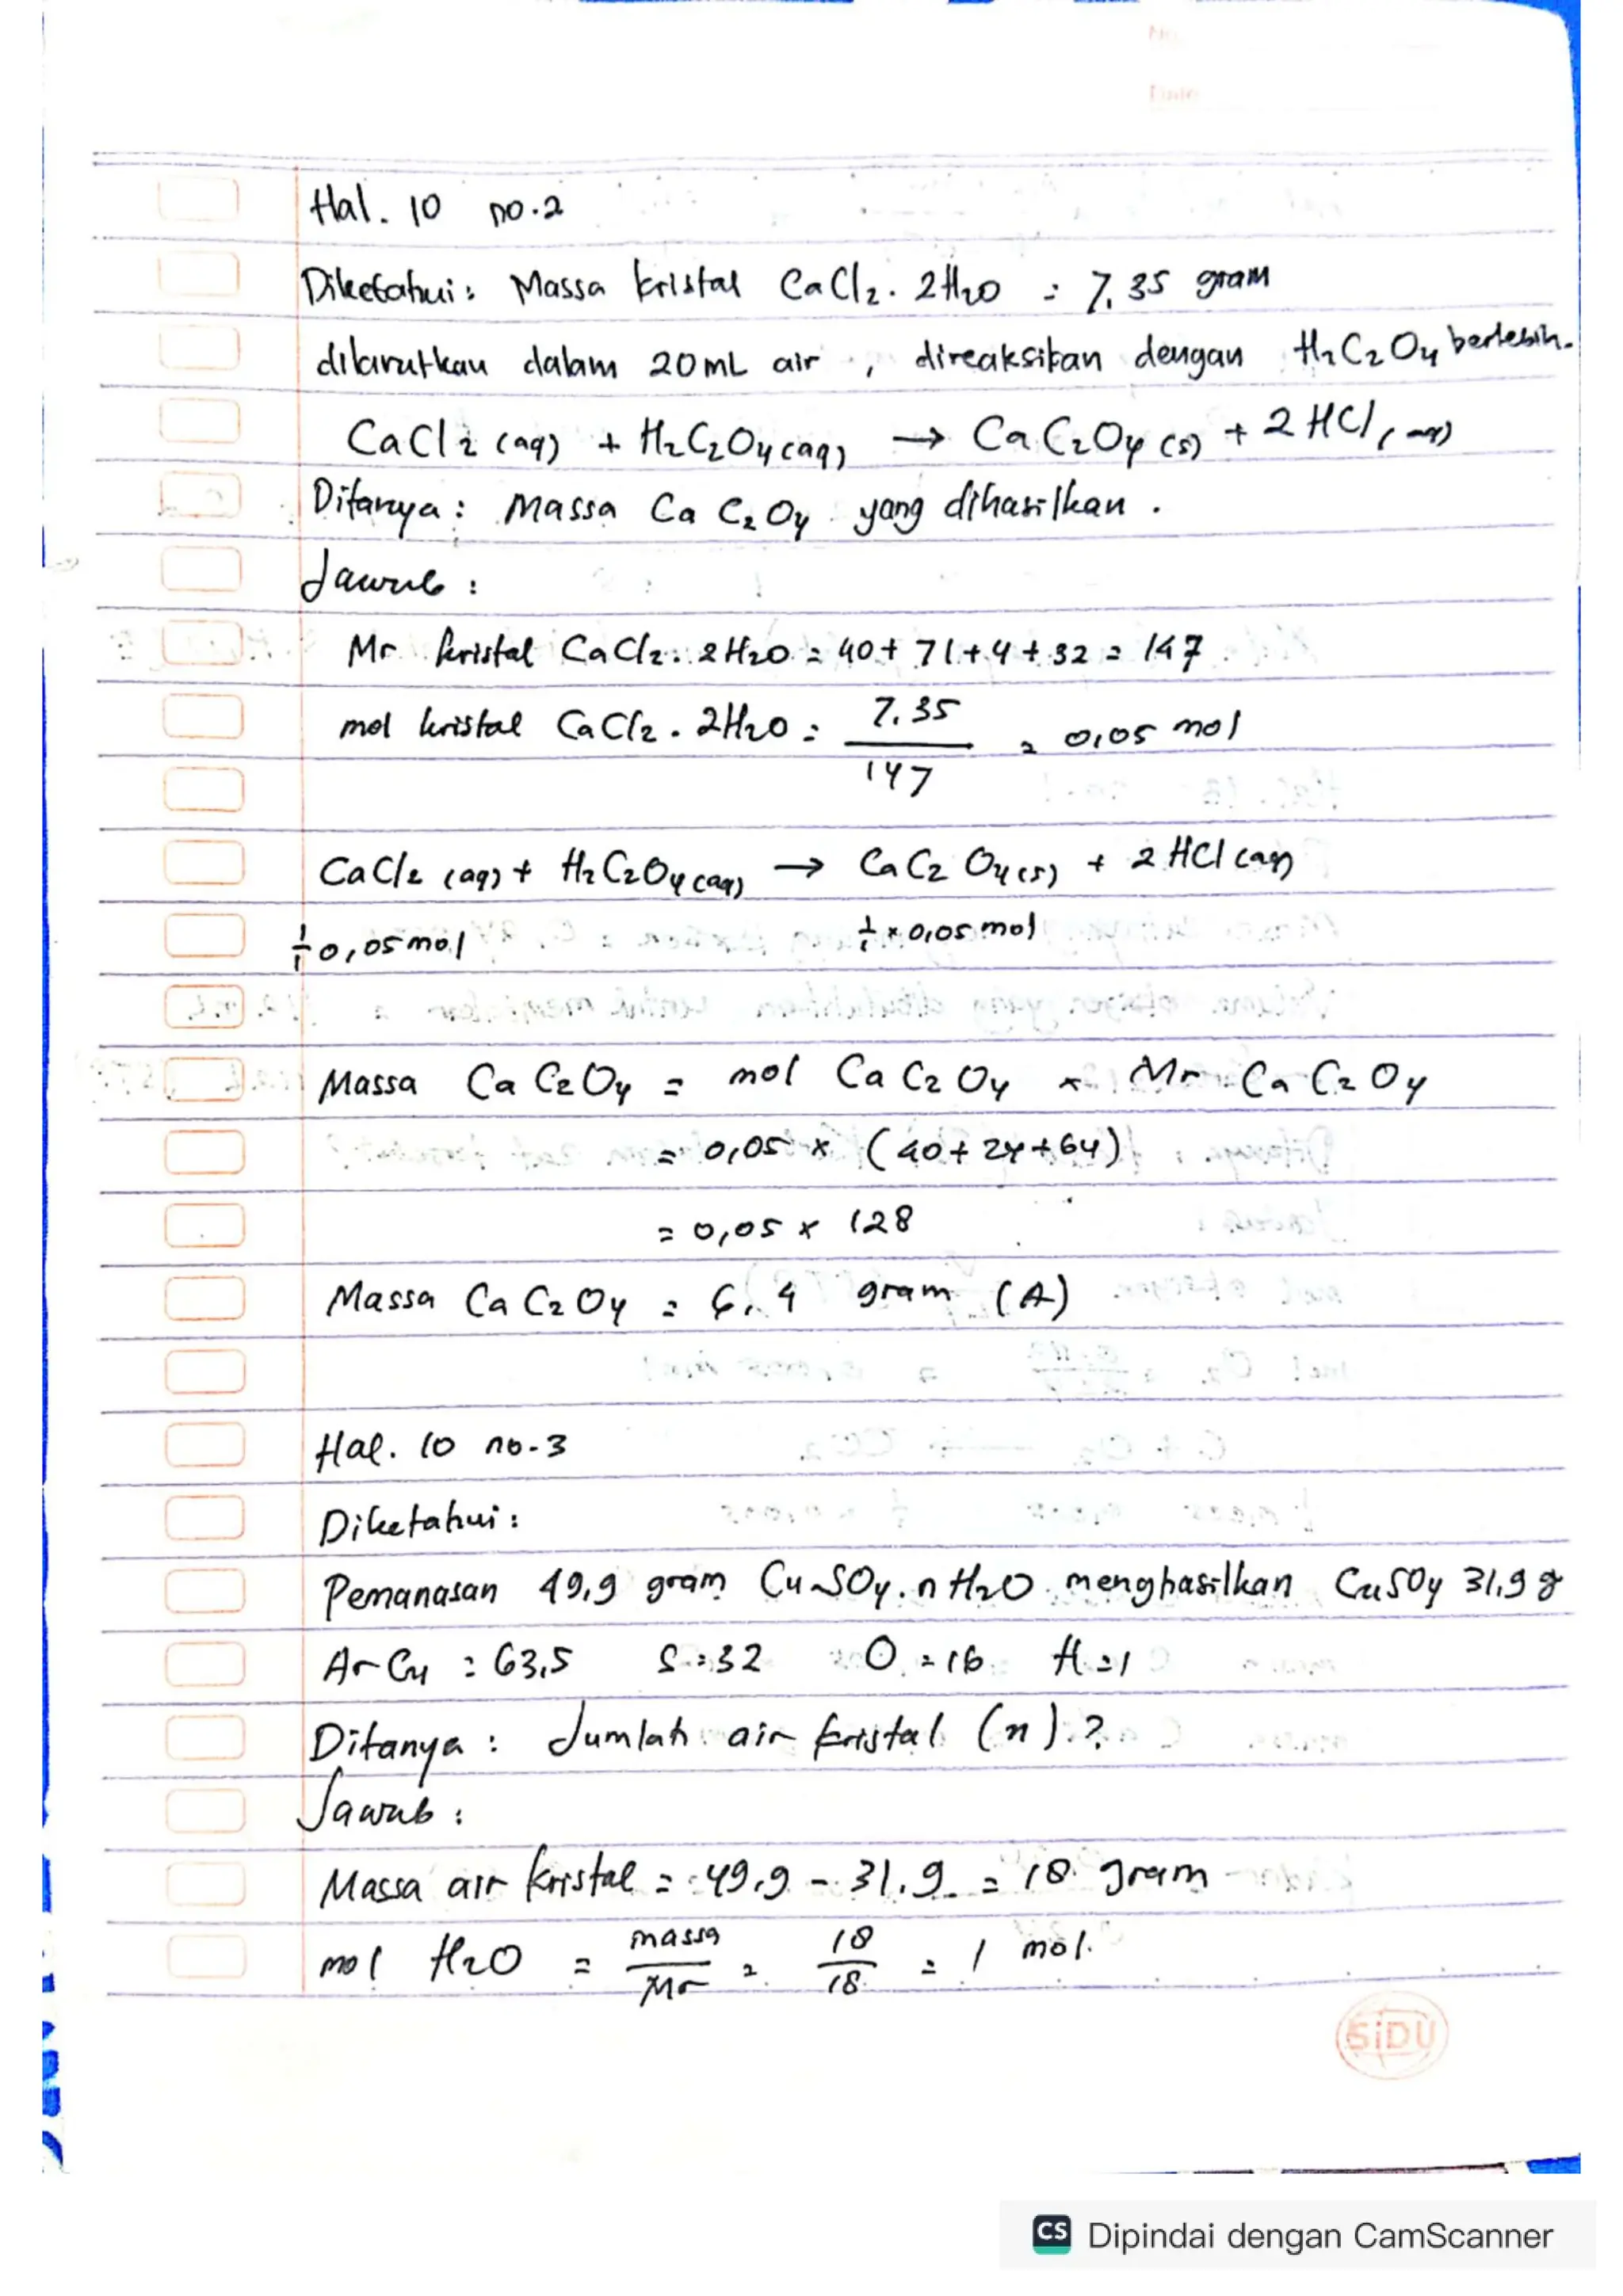 Hal. 10 no.2
Diketahui: Massa kristal CaCl₂. 2H₂O = 7.35 gram
dilarutkan dalam 20 mL air, direaksikan dengan H₂C₂O₄ berlebih.
CaCl₂ (aq) + H₂C₂O₄ (aq) → CaC₂O₄ (s) + 2 HCl (aq)
Ditanya: Massa CaC₂O₄ yang dihasilkan.
Jawab:
Mr kristal CaCl₂. 2H₂O = 40 + 71 + 4 + 32 = 147
mol kristal CaCl₂. 2H₂O = 7.35/147 = 0,05 mol
CaCl₂ (aq) + H₂C₂O₄ (aq) → CaC₂O₄ (s) + 2 HCl (aq)
1/1 0,05 mol 1/1 × 0,05 mol
Massa CaC₂O₄ = mol CaC₂O₄ × Mr CaC₂O₄
= 0,05 × (40 + 24 + 64)
= 0,05 × 128
Massa CaC₂O₄ = 6,4 gram (A)
Hal. 10 no.3
Diketahui:
Pemanasan 49,9 gram CuSO₄. n H₂O menghasilkan CuSO₄ 31,9 g
Ar Cu = 63,5 S = 32 O = 16 H = 1
Ditanya: Jumlah air kristal (n)?
Jawab:
Massa air kristal = 49,9 - 31,9 = 18 gram
mol H₂O = massa/Mr = 18/18 = 1 mol.
SiDU
CS Dipindai dengan CamScanner